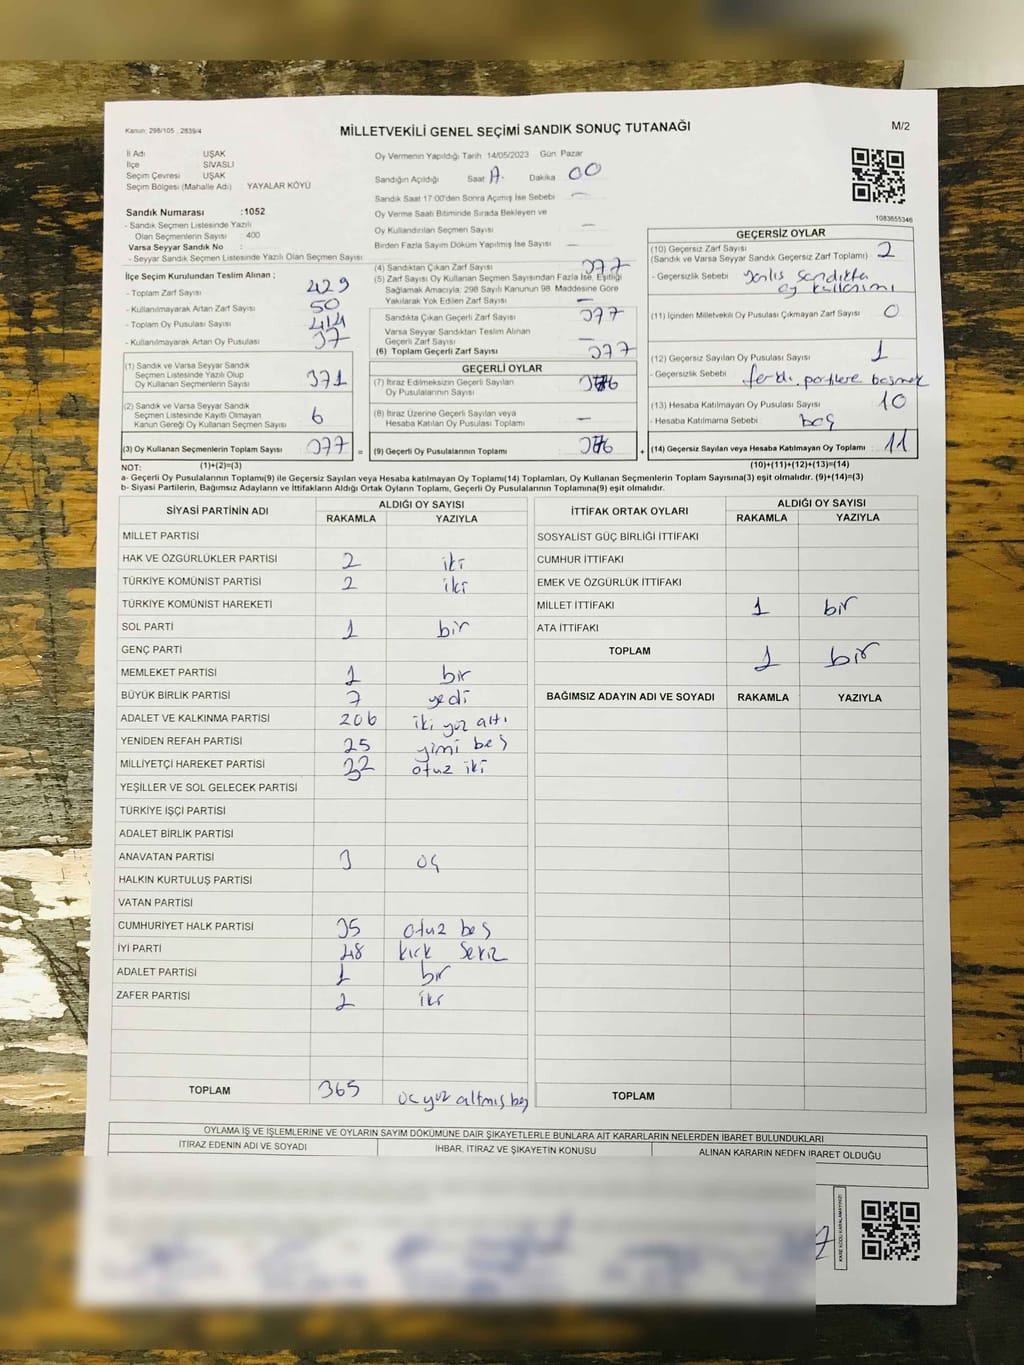 Kanun; 298/105 , 2839/4
MİLLETVEKİLİ GENEL SEÇİMİ SANDIK SONUÇ TUTANAĞI
M/2
İl Adı UŞAK
İlçe SİVASLI
Seçim Çevresi UŞAK
Seçim Bölgesi (Mahalle Adı) YAYALAR KÖYÜ
Sandık Numarası :1052
- Sandık Seçmen Listesinde Yazılı
Olan Seçmenlerin Sayısı : 400
Varsa Seyyar Sandık No :
- Seyyar Sandık Seçmen Listesinde Yazılı Olan Seçmen Sayısı
İlçe Seçim Kurulundan Teslim Alınan ;
- Toplam Zarf Sayısı 429
- Kullanılmayarak Artan Zarf Sayısı 50
- Toplam Oy Pusulası Sayısı 414
- Kullanılmayarak Artan Oy Pusulası 37
(1) Sandık ve Varsa Seyyar Sandık
Seçmen Listesinde Yazılı Olup
Oy Kullanan Seçmenlerin Sayısı 371
(2) Sandık ve Varsa Seyyar Sandık
Seçmen Listesinde Kayıtlı Olmayan
Kanun Gereği Oy Kullanan Seçmen Sayısı 6
(3) Oy Kullanan Seçmenlerin Toplam Sayısı 377 =
Oy Vermenin Yapıldığı Tarih 14/05/2023 Gün Pazar
Sandığın Açıldığı Saat Dakika 00
Sandık Saat 17:00'den Sonra Açımış İse Sebebi —
Oy Verme Saati Bitiminde Sırada Bekleyen ve
Oy Kullandırılan Seçmen Sayısı —
Birden Fazla Sayım Döküm Yapılmış İse Sayısı —
(4) Sandıktan Çıkan Zarf Sayısı 377
(5) Zarf Sayısı Oy Kullanan Seçmen Sayısından Fazla İse, Eşitliği
Sağlamak Amacıyla; 298 Sayılı Kanunun 98. Maddesine Göre
Yakılarak Yok Edilen Zarf Sayısı —
Sandıkta Çıkan Geçerli Zarf Sayısı 377
Varsa Seyyar Sandıktan Teslim Alınan
Geçerli Zarf Sayısı —
(6) Toplam Geçerli Zarf Sayısı 377
GEÇERLİ OYLAR
(7) İtiraz Edilmeksizin Geçerli Sayılan
Oy Pusulalarının Sayısı
(8) İtiraz Üzerine Geçerli Sayılan veya
Hesaba Katılan Oy Pusulası Toplamı —
(9) Geçerli Oy Pusulalarının Toplamı +
1083655346
GEÇERSİZ OYLAR
(10) Geçersiz Zarf Sayısı
(Sandık ve Varsa Seyyar Sandık Geçersiz Zarf Toplamı) 2
- Geçersizlik Sebebi Yanlış sandıkta
oy kullanımı
(11) İçinden Milletvekili Oy Pusulası Çıkmayan Zarf Sayısı 0
(12) Geçersiz Sayılan Oy Pusulası Sayısı 1
- Geçersizlik Sebebi farklı partilere basmak
(13) Hesaba Katılmayan Oy Pusulası Sayısı 10
- Hesaba Katılmama Sebebi boş
(14) Geçersiz Sayılan veya Hesaba Katılmayan Oy Toplamı 11
NOT: (1)+(2)=(3) (10)+(11)+(12)+(13)=(14)
a- Geçerli Oy Pusulalarının Toplamı(9) ile Geçersiz Sayılan veya Hesaba katılmayan Oy Toplamı(14) Toplamları, Oy Kullanan Seçmenlerin Toplam Sayısına(3) eşit olmalıdır. (9)+(14)=(3)
b- Siyasi Partilerin, Bağımsız Adayların ve İttifakların Aldığı Ortak Oyların Toplamı, Geçerli Oy Pusulalarının Toplamına(9) eşit olmalıdır.
SİYASİ PARTİNİN ADI ALDIĞI OY SAYISI
RAKAMLA YAZIYLA
MİLLET PARTİSİ
HAK VE ÖZGÜRLÜKLER PARTİSİ 2 iki
TÜRKİYE KOMÜNİST PARTİSİ 2 iki
TÜRKİYE KOMÜNİST HAREKETİ
SOL PARTİ 1 bir
GENÇ PARTİ
MEMLEKET PARTİSİ 1 bir
BÜYÜK BİRLİK PARTİSİ 7 yedi
ADALET VE KALKINMA PARTİSİ 206 iki yüz altı
YENİDEN REFAH PARTİSİ 25 yimi beş
MİLLİYETÇİ HAREKET PARTİSİ 32 otuz iki
YEŞİLLER VE SOL GELECEK PARTİSİ
TÜRKİYE İŞÇİ PARTİSİ
ADALET BİRLİK PARTİSİ
ANAVATAN PARTİSİ 3 üç
HALKIN KURTULUŞ PARTİSİ
VATAN PARTİSİ
CUMHURİYET HALK PARTİSİ 35 otuz beş
İYİ PARTİ 48 kırk sekiz
ADALET PARTİSİ 1 bir
ZAFER PARTİSİ 2 iki
TOPLAM 365 üç yüz altmış beş
İTTİFAK ORTAK OYLARI ALDIĞI OY SAYISI
RAKAMLA YAZIYLA
SOSYALİST GÜÇ BİRLİĞİ İTTİFAKI
CUMHUR İTTİFAKI
EMEK VE ÖZGÜRLÜK İTTİFAKI
MİLLET İTTİFAKI 1 bir
ATA İTTİFAKI
TOPLAM 1 bir
BAĞIMSIZ ADAYIN ADI VE SOYADI RAKAMLA YAZIYLA
TOPLAM
OYLAMA İŞ VE İŞLEMLERİNE VE OYLARIN SAYIM DÖKÜMÜNE DAİR ŞİKAYETLERLE BUNLARA AİT KARARLARIN NELERDEN İBARET BULUNDUKLARI
İTİRAZ EDENİN ADI VE SOYADI İHBAR, İTİRAZ VE ŞİKAYETİN KONUSU ALINAN KARARIN NEDEN İBARET OLDUĞU
KARE KODU KARALAMAYINIZ!